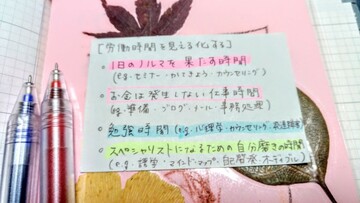 [労働時間を見える化する]
◦ 1日のノルマを果たす時間
(e.g. セミナー・かてきょう・カウンセリング)
◦ お金は発生しない仕事時間
(eg. 準備・ブログ・メール・事務処理)
◦ 勉強時間 (e.g. 心理学・カウンセリング・
◦ スペシャリストになるための自分磨きの時間
(e.g. 語学・マインドマップ・自己啓発・ボディブル)